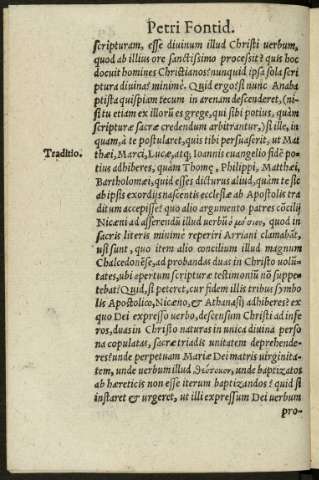 Petri Fontid.
scripturam, esse diuinum illud Christi uerbum,
quod ab illius ore sanctissimo processit? quis hoc
docuit homines Christianos? nunquid ipsa sola scri
ptura diuina? minimè. Quid ergo? si nunc Anaba
ptista quispiam tecum in arenam descenderet, (ni-
si tu etiam ex illorū es grege, qui sibi potius, quàm
scripturæ sacræ credendum arbitrantur,) si ille, in
quam, à te postularet, quis tibi persuaserit, ut Mat
Traditio.
thæi, Marci, Lucæ, atq; Ioannis euangelio fidē po-
tius adhiberes, quàm Thomę, Philippi, Matthæi,
Bartholomæi, quid esses dicturus aliud, quàm te sic
ab ipsis exordijs nascentis ecclesiæ ab Apostolis tra
ditum accepisse? quo alio argumento patres cōcilij
Nicæni ad asserendū illud uerbū ὁμοούσιον, quod in
sacris literis minimè reperiri Arriani clamabāt,
usi sunt, quo item alio concilium illud magnum
Chalcedonēse, ad probandas duas in Christo uolū-
tates, ubi apertum scripturæ testimoniū nō suppe-
tebat? Quid, si peteret, cur fidem illis tribus symbo
lis Apostolico, Nicæno, & Athanasij adhiberes? ex
quo Dei expresso uerbo, descensum Christi ad infe
ros, duas in Christo naturas in unica diuina perso
na copulatas, sacræ triadis unitatem deprehende-
res? unde perpetuam Mariæ Dei matris uirginita-
tem, unde uerbum illud θεότοκον, unde baptizatos
ab hæreticis non esse iterum baptizandos? quid si
instaret & urgeret, ut illi expressum Dei uerbum
pro-